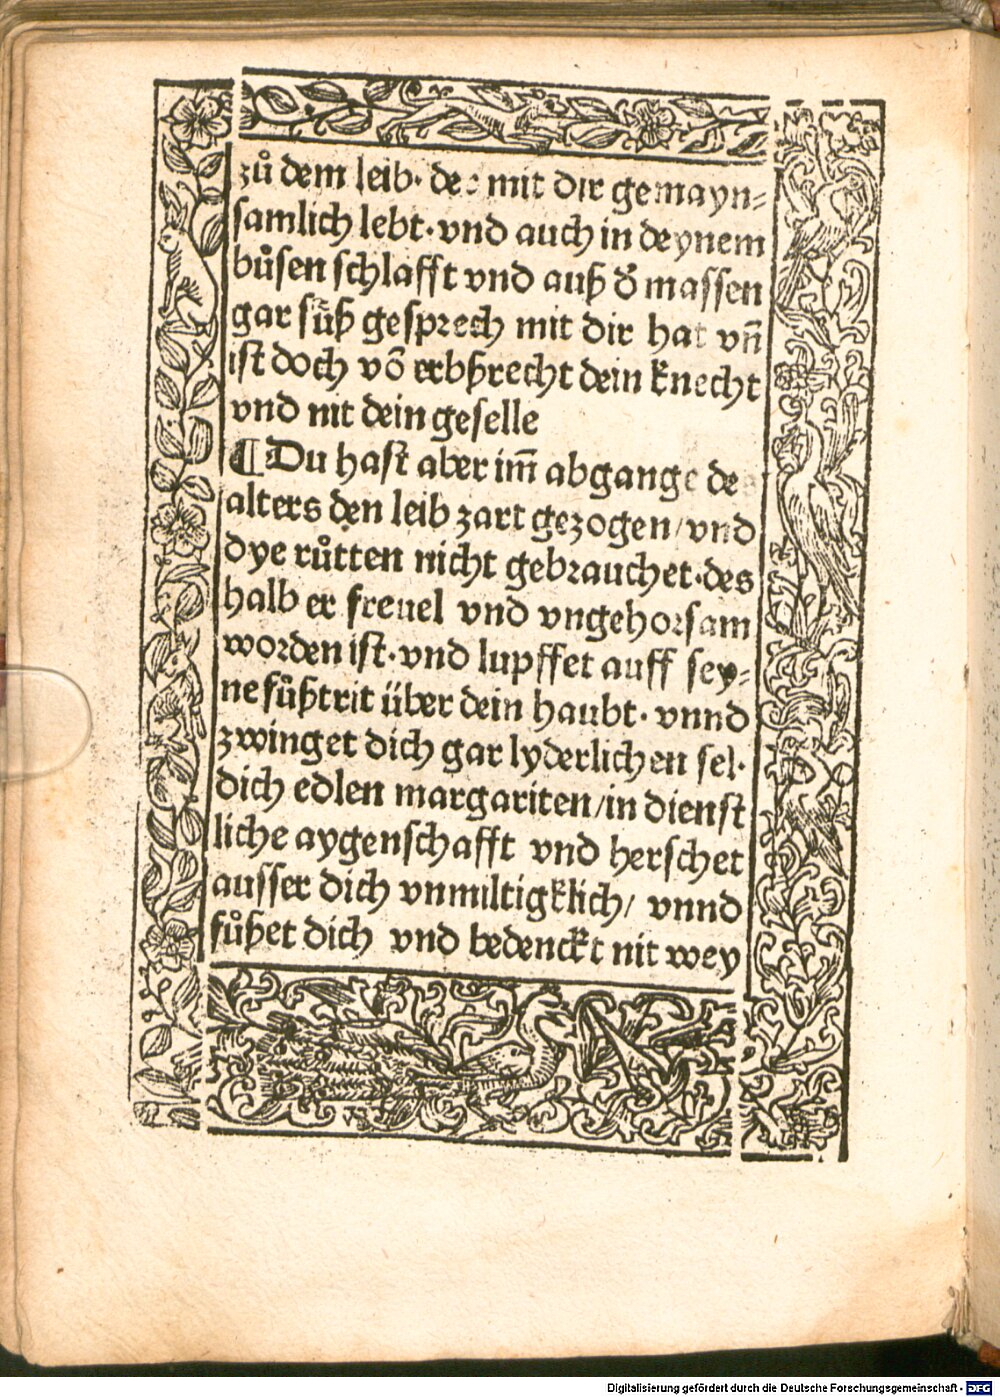 zů dem leib· der mit dir gemayn⸗
samlich lebt·vnd auch in deynem
bůsen schlafft vnd auß d̕ massen
gar sůß gesprech mit dir hat vñ
ist doch võ erbßrecht dein knecht
vnd nit dein geselle
¶Du hast aber im̄ abgange des
alters den leib zart gezogen/vnd
dye růtten nicht gebrauchet·des
halb er freuel vnd vngehorsam
worden ist·vnd lupffet auff sey⸗
ne fůßtrit über dein haubt· vnnd
zwinget dich gar lyderlichen sel·
dich edlen margariten/in dienst
liche aygenschafft vnd herschet
ausser dich vnmiltigklich/ vnnd
fůßet dich vnd bedenckt nit wey
Digitalisierung gefördert durch die Deutsche Forschungsgemeinschaft - DFG